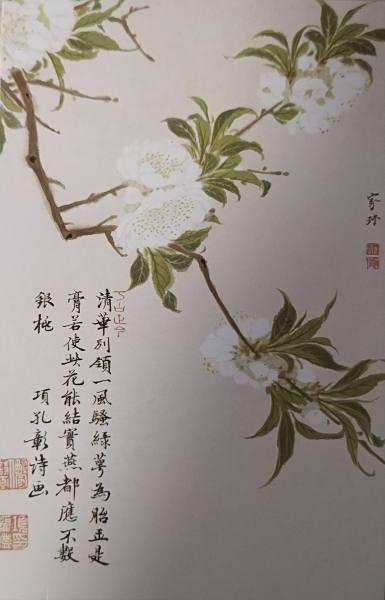 清華別領一風騷綠萼為胎玉是
膏若使此花能結實燕都應不數
銀桃
項孔彰詩画
家琛